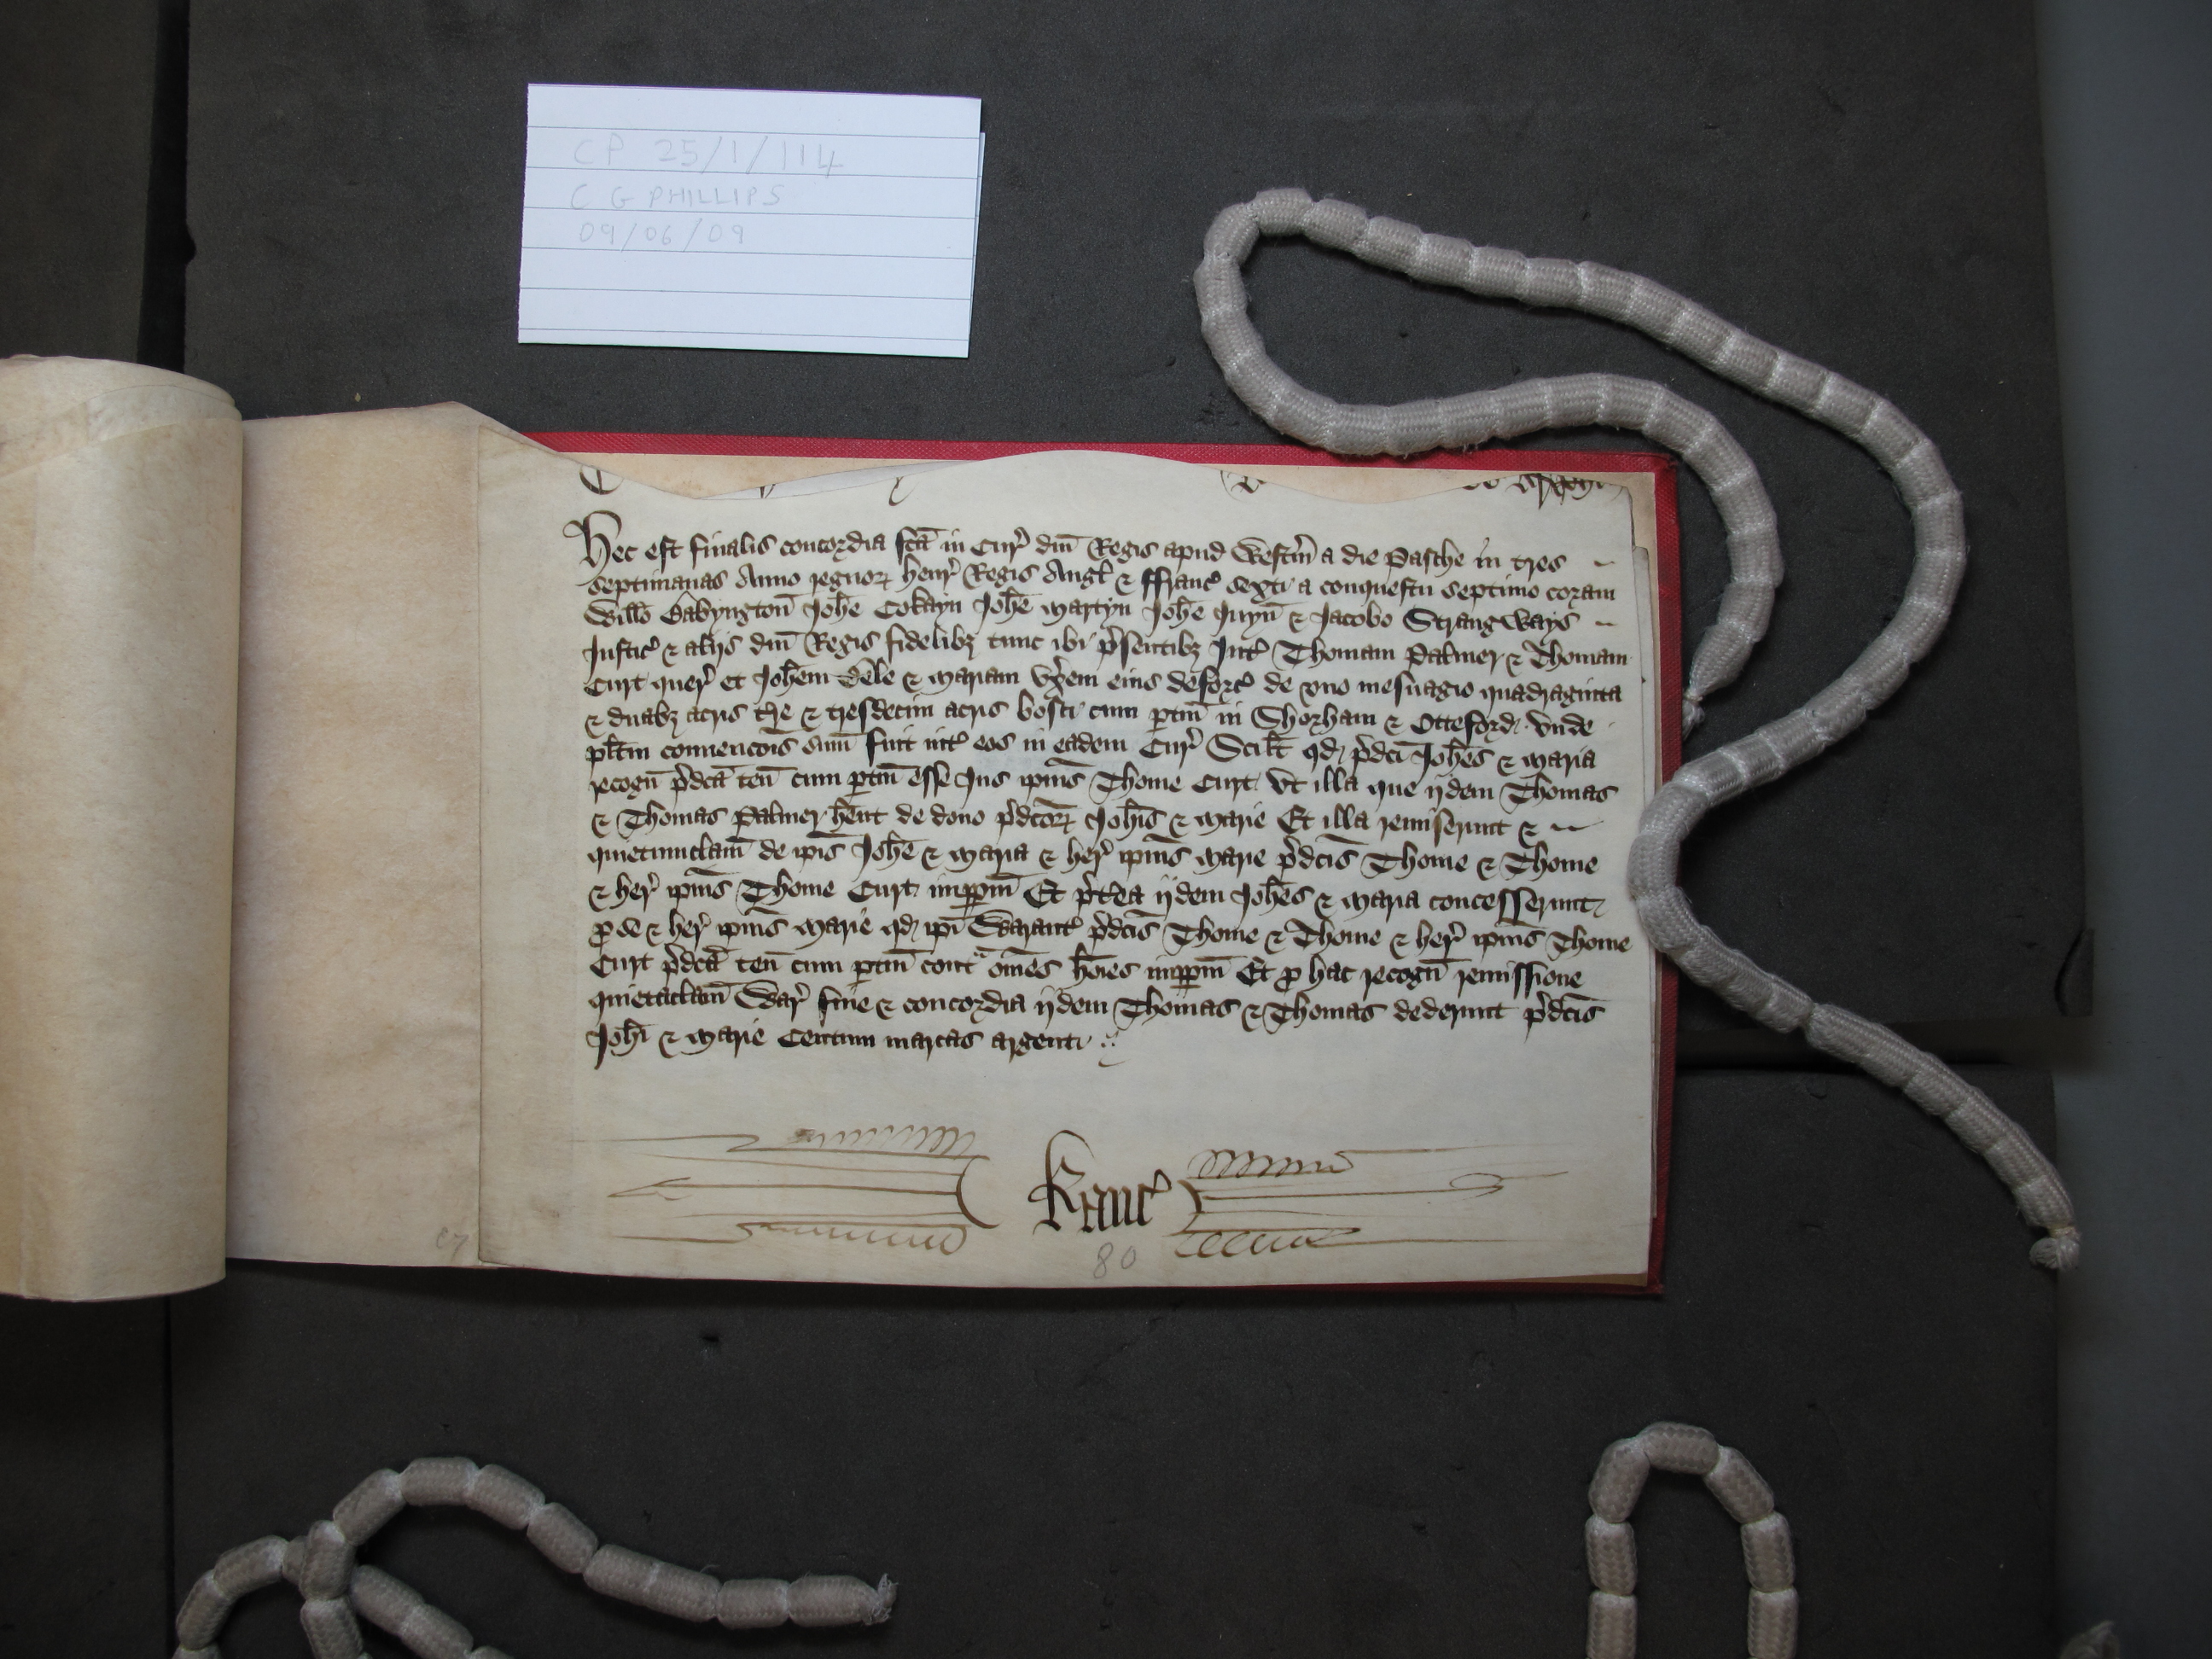 CP 25/1/114
C G PHILLIPS
09/06/09
Hec est finalis concordia fcā in Cur' dn̄i Regis apud Westm̄ a die Pasche in tres
septimanas Anno regnoꝝ Henr' Regis Angl̄ & ffranc' sexti a conquestu septimo coram
Will̄o Babyngton̄ Joh̄e Cokayn Joh̄e Martyn Joh̄e Juyn̄ & Jacobo Strangways
Justic' & alijs dn̄i Regis fidelibꝫ tunc ibi p'sentibꝫ Int' Thomam Palmer & Thomam
Curt quer' et Joh̄em Dele & Mariam vx'em eius deforc' de vno mesuagio quadraginta
& duabꝫ acris t're & tresdecim acris bosci cum ptin̄ in Shorham & Otteford vnde
pl̄itm conuencōis sum̄ fuit int' eos in eadem Cur' Scil̄t qd p'dc̄i Joh̄es & Maria
recogn̄ p'dc̄a ten̄ cum ptin̄ esse Jus ip̄ius Thome Curt vt illa que ijdem Thomas
& Thomas Palmer h̄ent de dono p'dc̄oꝝ Joh̄is & Marie Et illa remiserunt &
quietumclam̄ de ip̄is Joh̄e & Maria & her' ip̄ius Marie p'dc̄is Thome & Thome
& her' ip̄ius Thome Curt imꝑpm̄ Et p't'ea ijdem Joh̄es & Maria concesserunt
ꝓ se & her' ip̄ius Marie qd ip̄i Warant' p'dc̄is Thome & Thome & her' ip̄ius Thome
Curt p'dc̄a ten̄ cum ptin̄ contᵃ om̄es ho̅ies imꝑpm̄ Et ꝓ hac recogn̄ remissione
quietaclam̄ War' fine & concordia ijdem Thomas & Thomas dederunt p'dc̄is
Joh̄i & Marie Centum marcas argenti
Kanc'
80